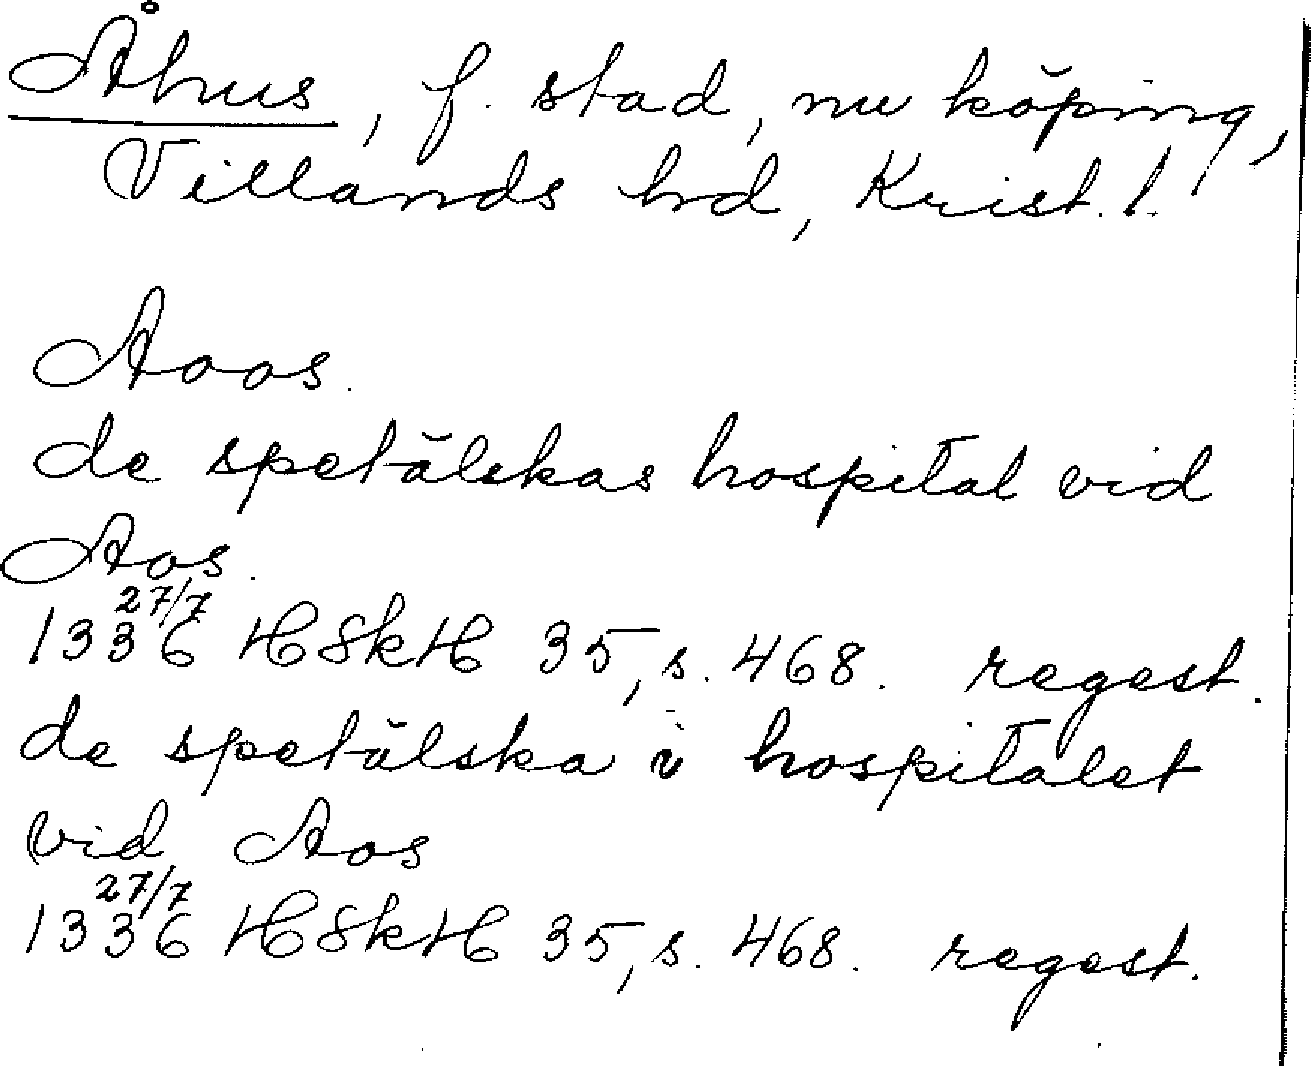 Åhus, f. stad, nu köping,
Villands hd, Krist. l.
Aoos.
de spetälskas hospital vid
Aos.
27/7
1336 HSkH 35, s. 468. regest.
de spetälska i hospitalet
vid Aos
27/7
1336 HSkH 35, s. 468. regest.